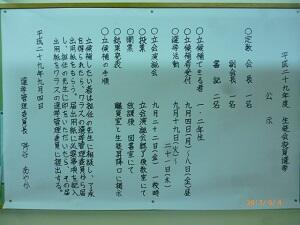 平成二十九年度 生徒会役員選挙
公示
○定数 会長 一名
副会長 一名
書記 二名
○立候補できる者 一・二年生
○立候補者受付 九月四日(月)～八日(金)昼
○選挙活動 九月十九日(火)～二十一日(木)
○立会演説会 九月二十二日(金) 一校時
○投票 立会演説会終了後教室にて
○開票 放課後 図書室にて
○結果発表 職員室と生徒昇降口に掲示
○立候補の手順
立候補したい者は担任の先生に相談し、了承
を得られたら、クラスの選挙管理委員から届
出用紙をもらう。届出用紙に必要事項を記入
し、担任の先生に印をいただいたら、その届
出用紙をクラスの選挙管理委員に提出する。
平成二十九年九月四日
選挙管理委員長
2017/9/4